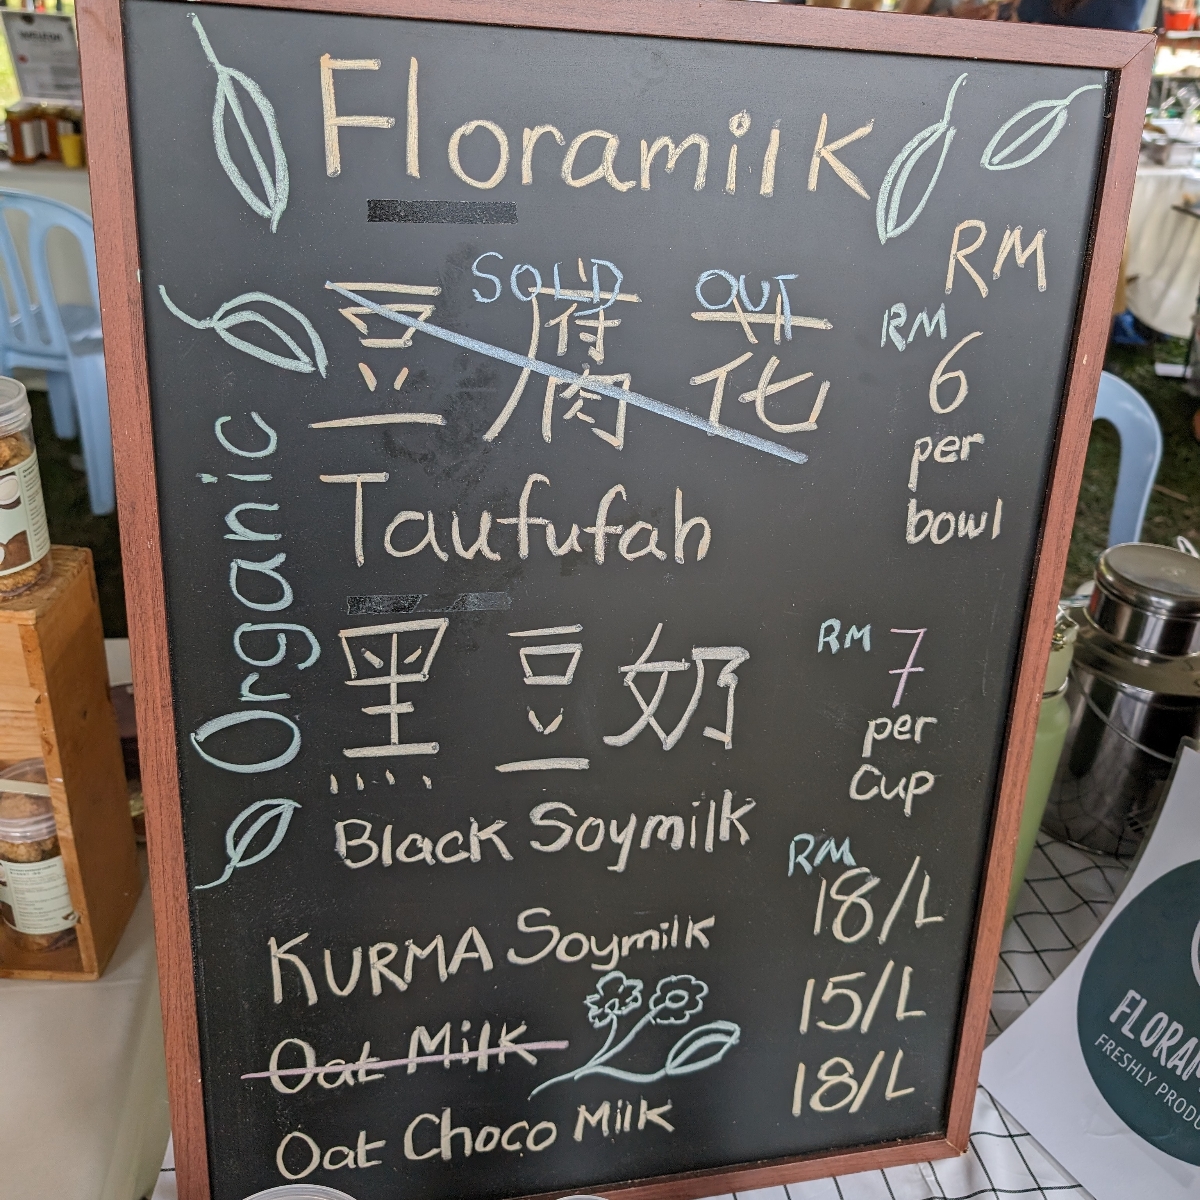 Floramilk
RM
SOLD OUT
豆腐花
RM 6
per
bowl
Taufufah
Organic
黑豆奶
RM 7
per
cup
Black Soymilk
RM
KURMA Soymilk 18/L
Oat Milk 15/L
Oat Choco Milk 18/L
FLORAM
FRESHLY PRODU